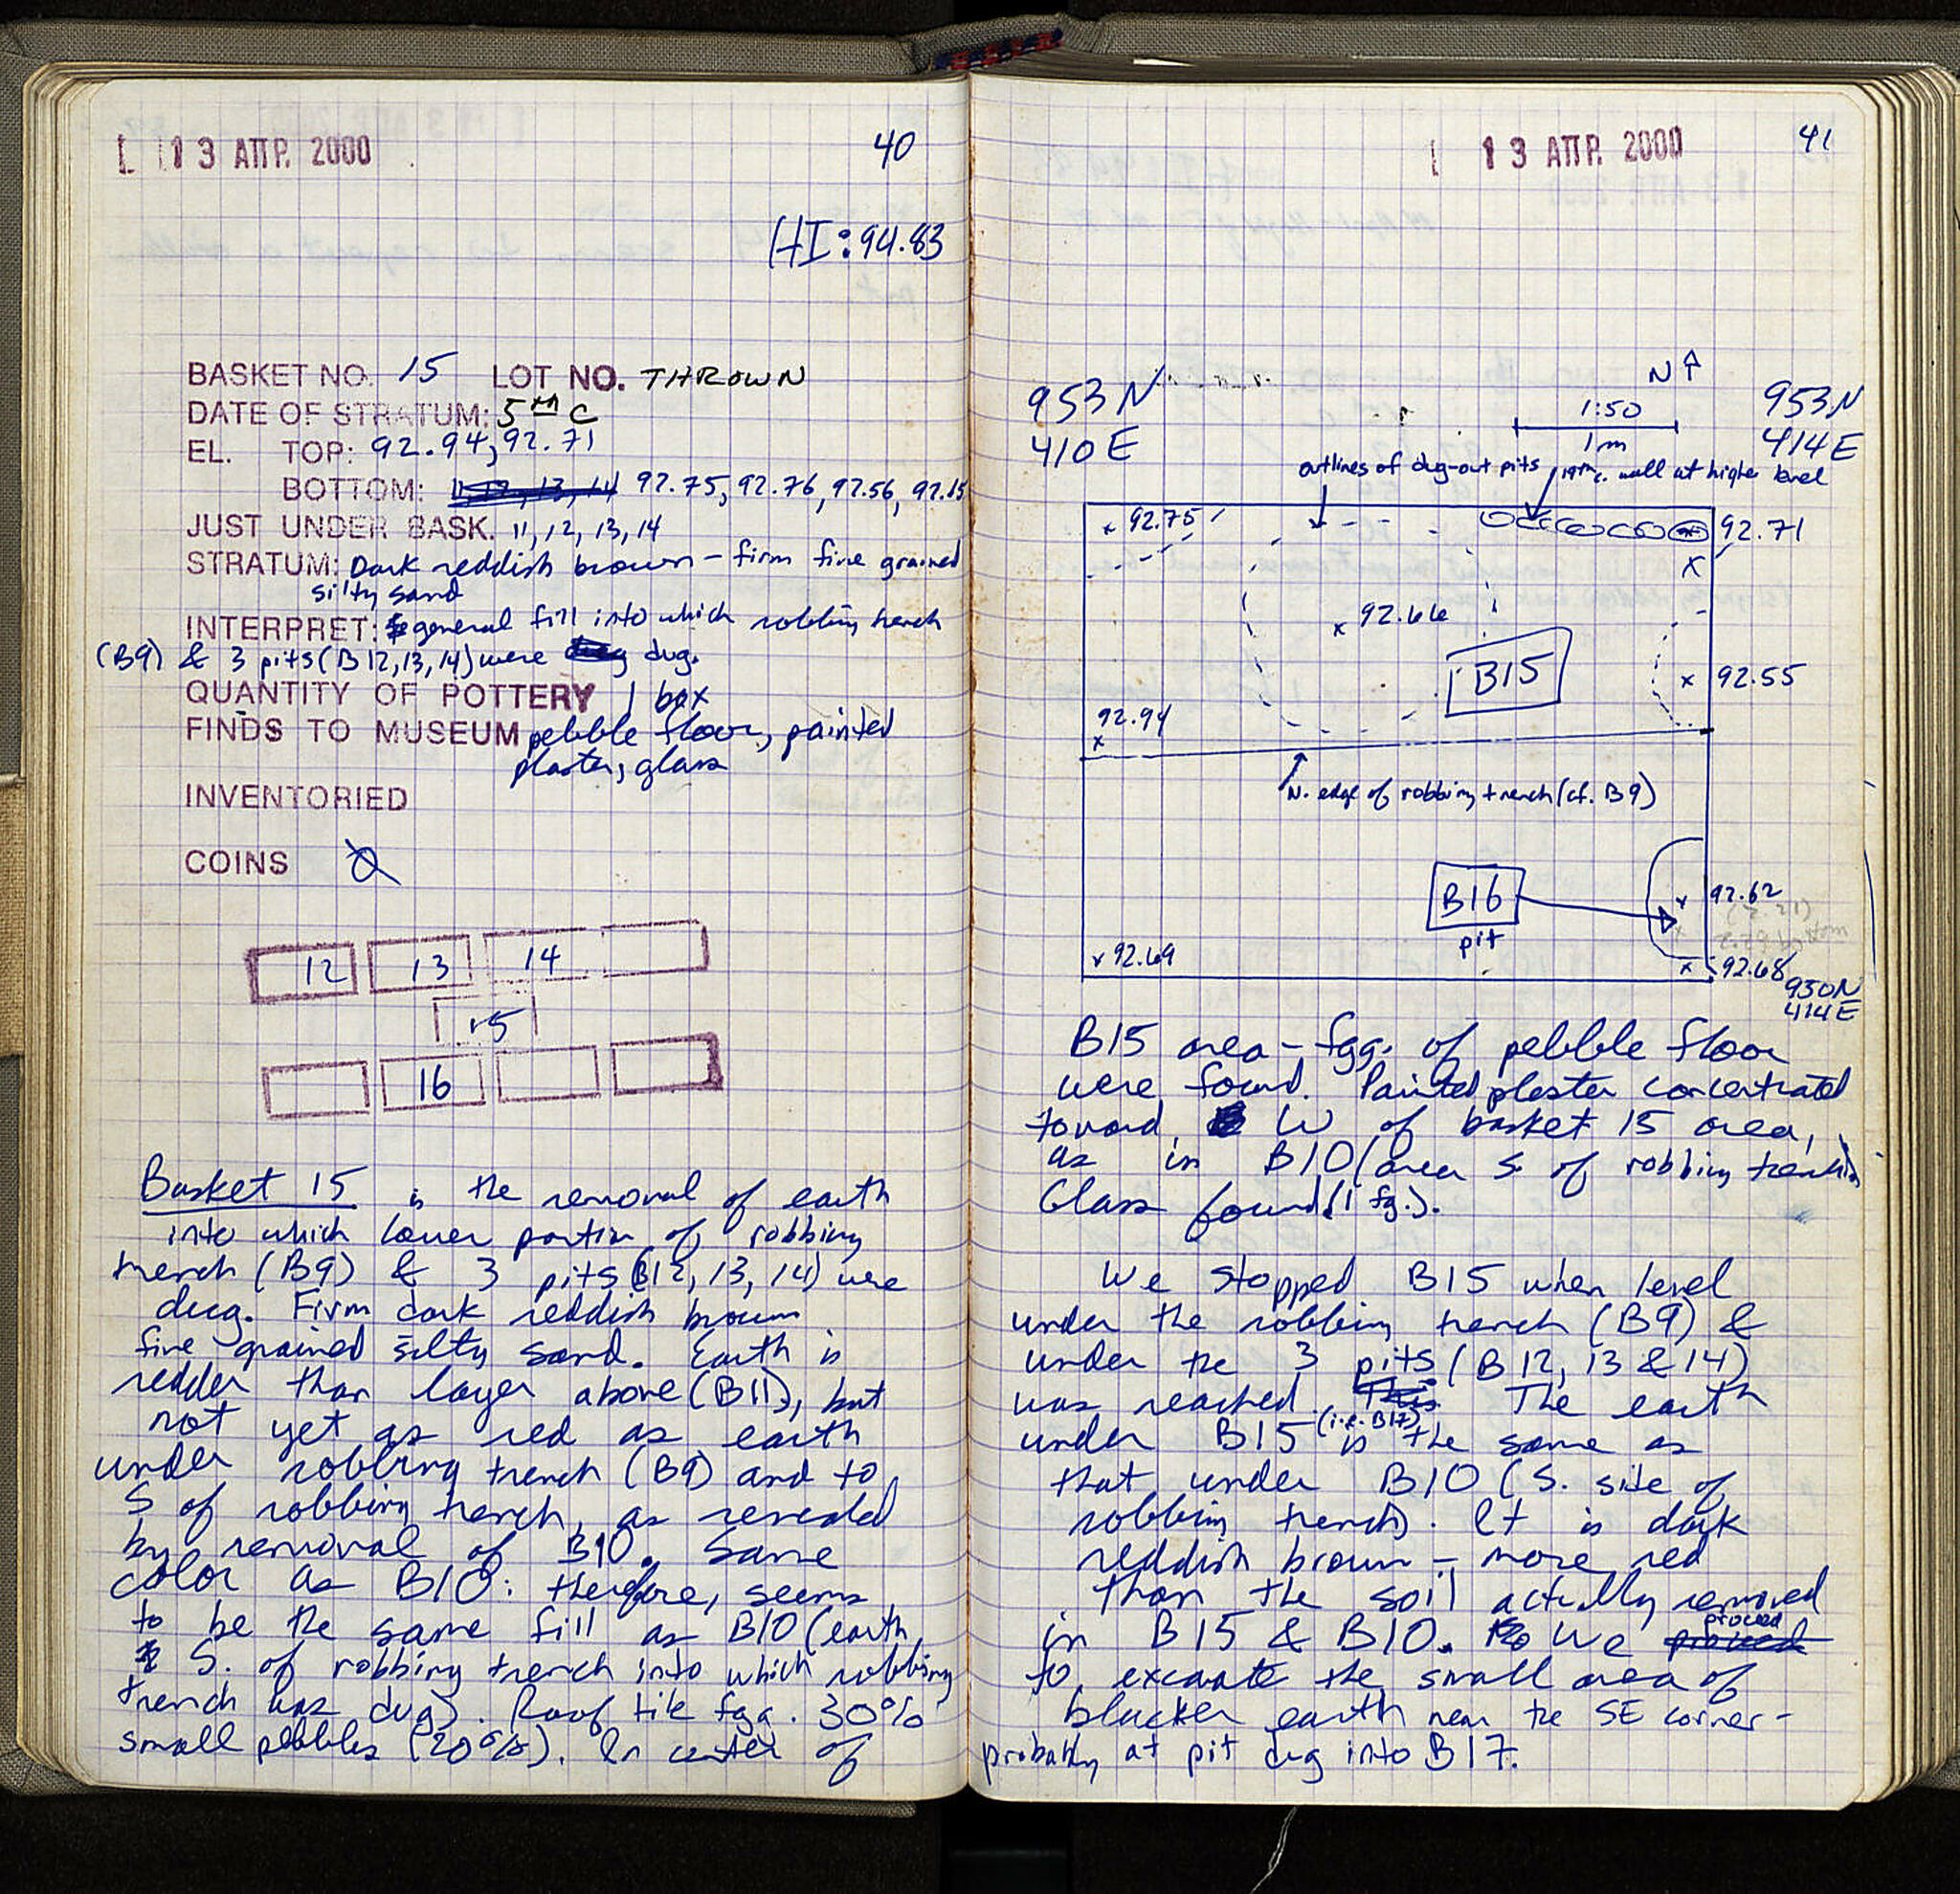 13 ΑΠΡ. 2000
40
HI: 94.83
BASKET NO. 15 LOT NO. THROWN
DATE OF STRATUM: 5th C
EL. TOP: 92.94, 92.71
BOTTOM: 11, 12, 13, 14 92.75, 92.76, 92.56, 92.
JUST UNDER BASK. 11, 12, 13, 14
STRATUM: Dark reddish brown - firm fine grained
silty sand
INTERPRET: general fill into which robbing trench
(B9) & 3 pits (B12, 13, 14) were dug.
QUANTITY OF POTTERY 1 box
FINDS TO MUSEUM pebble floor, painted
plaster, glass
INVENTORIED
COINS Ø
12 13 14
15
16
Basket 15 is the removal of earth
into which lower portion of robbing
trench (B9) & 3 pits (B12, 13, 14) were
dug. Firm dark reddish brown
fine grained silty sand. Earth is
redder than layer above (B11), but
not yet as red as earth
under robbing trench (B9) and to
S of robbing trench, as revealed
by removal of B10. Same
color as B10: therefore, seems
to be the same fill as B10 (earth
S. of robbing trench into which robbing
trench was dug). Roof tile fgg. 30%
small pebbles (20%). In center of
13 ΑΠΡ. 2000
41
N↑
953N
410E
1:50
1m
953N
414E
outlines of dug-out pits
19th c. wall at higher level
92.75
92.71
92.66
B15
92.55
92.94
N. edge of robbing trench (cf. B9)
B16
pit
92.62
92.69
92.68
950N
414E
B15 area - fgg. of pebble floor
were found. Painted plaster concentrated
toward W of basket 15 area,
as in B10 (area S. of robbing trench)
Glass found (1 fg.).
We stopped B15 when level
under the robbing trench (B9) &
under the 3 pits (B12, 13 & 14)
was reached. This The earth
under B15 (i.e. B17) is the same as
that under B10 (S. side of
robbing trench). It is dark
reddish brown - more red
than the soil actually removed
in B15 & B10. We proceed
to excavate the small area of
blacker earth near the SE corner -
probably at pit dug into B17.